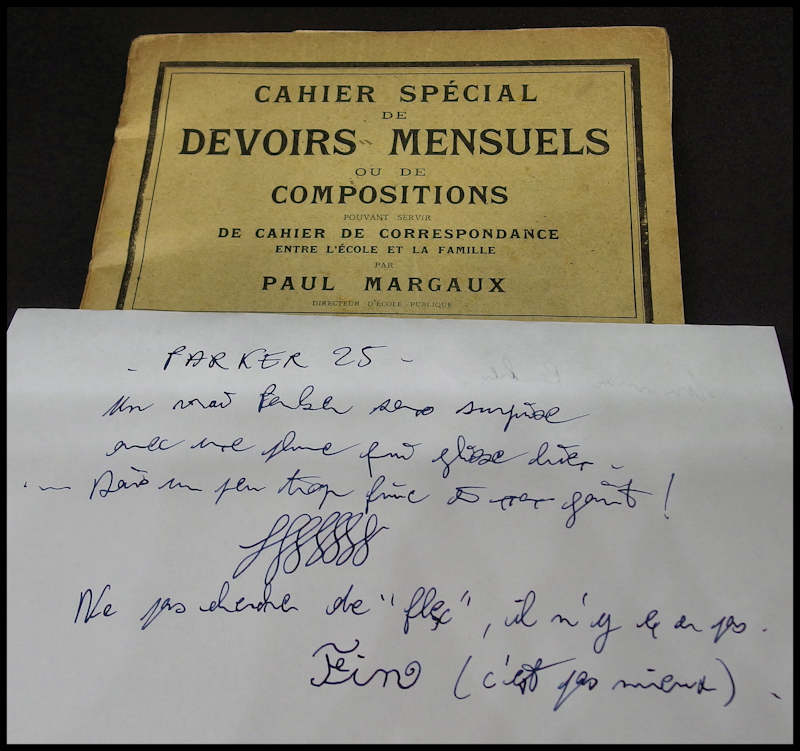 CAHIER SPÉCIAL
DE
DEVOIRS MENSUELS
OU DE
COMPOSITIONS
POUVANT SERVIR
DE CAHIER DE CORRESPONDANCE
ENTRE L'ÉCOLE ET LA FAMILLE
PAR
PAUL MARGAUX
DIRECTEUR D'ÉCOLE PUBLIQUE
- PARKER 25 -
Un vrai Parker sans surprise
avec une plume qui glisse bien
Mais un peu trop fine à mon goût !
Ne pas chercher de "flex", il n'y en a pas.
Fin (c'est pas mieux)